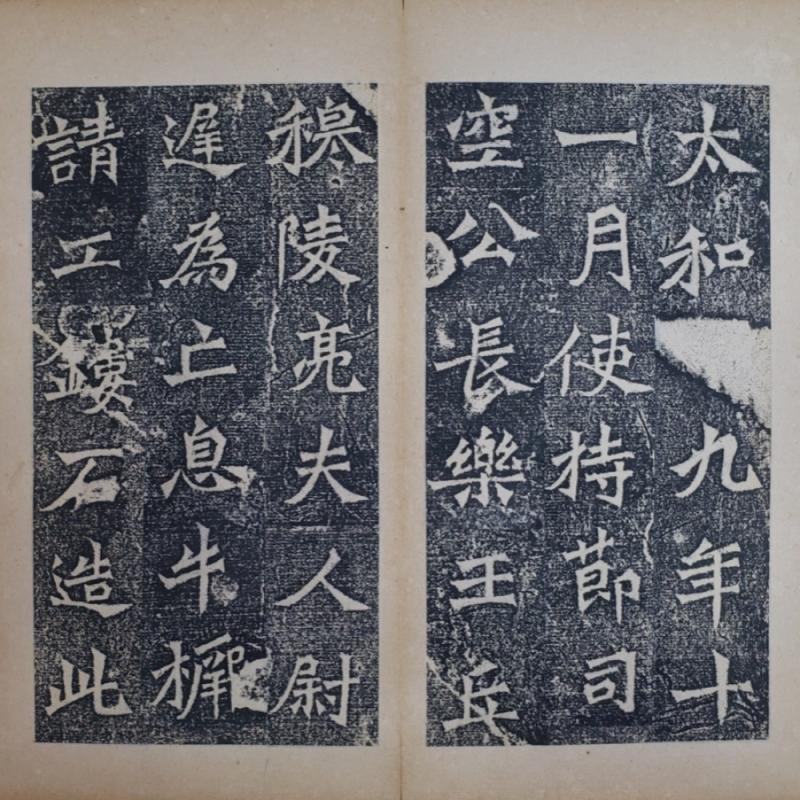 太和九年十
一月使持節司
空公長樂王丘
穆陵亮夫人尉
遲為亡息牛橛
請工鏤石造此